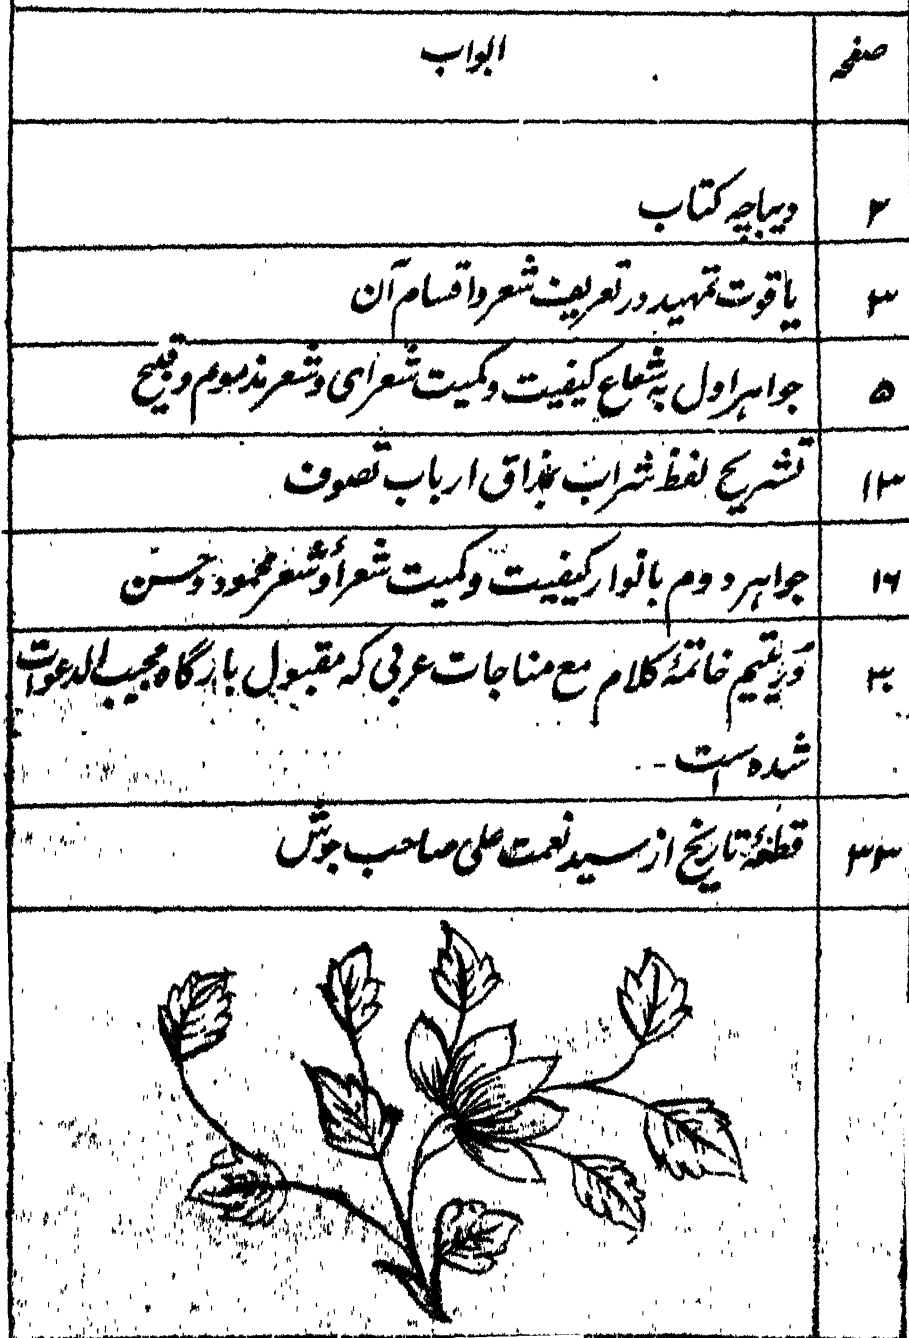 صفحہ ابواب
۲ دیباچہ کتاب
۳ یاقوت تمہید در تعریف شعر و اقسام آن
۵ جواہر اول بہ شعاع کیفیت و کمیت شعرای و شعر مذموم و قبیح
۱۳ تشریح لفظ شراب بمذاق ارباب تصوف
۱۶ جواہر دوم بانوار کیفیت و کمیت شعرأ و شعر محمود و حسن
۳۰ دُرِّ یتیم خاتمۂ کلام مع مناجات عربی کہ مقبول بارگاہ مجیب الدعوات
شدہ است
۳۳ قطعۂ تاریخ از سید نعمت علی صاحب جوش